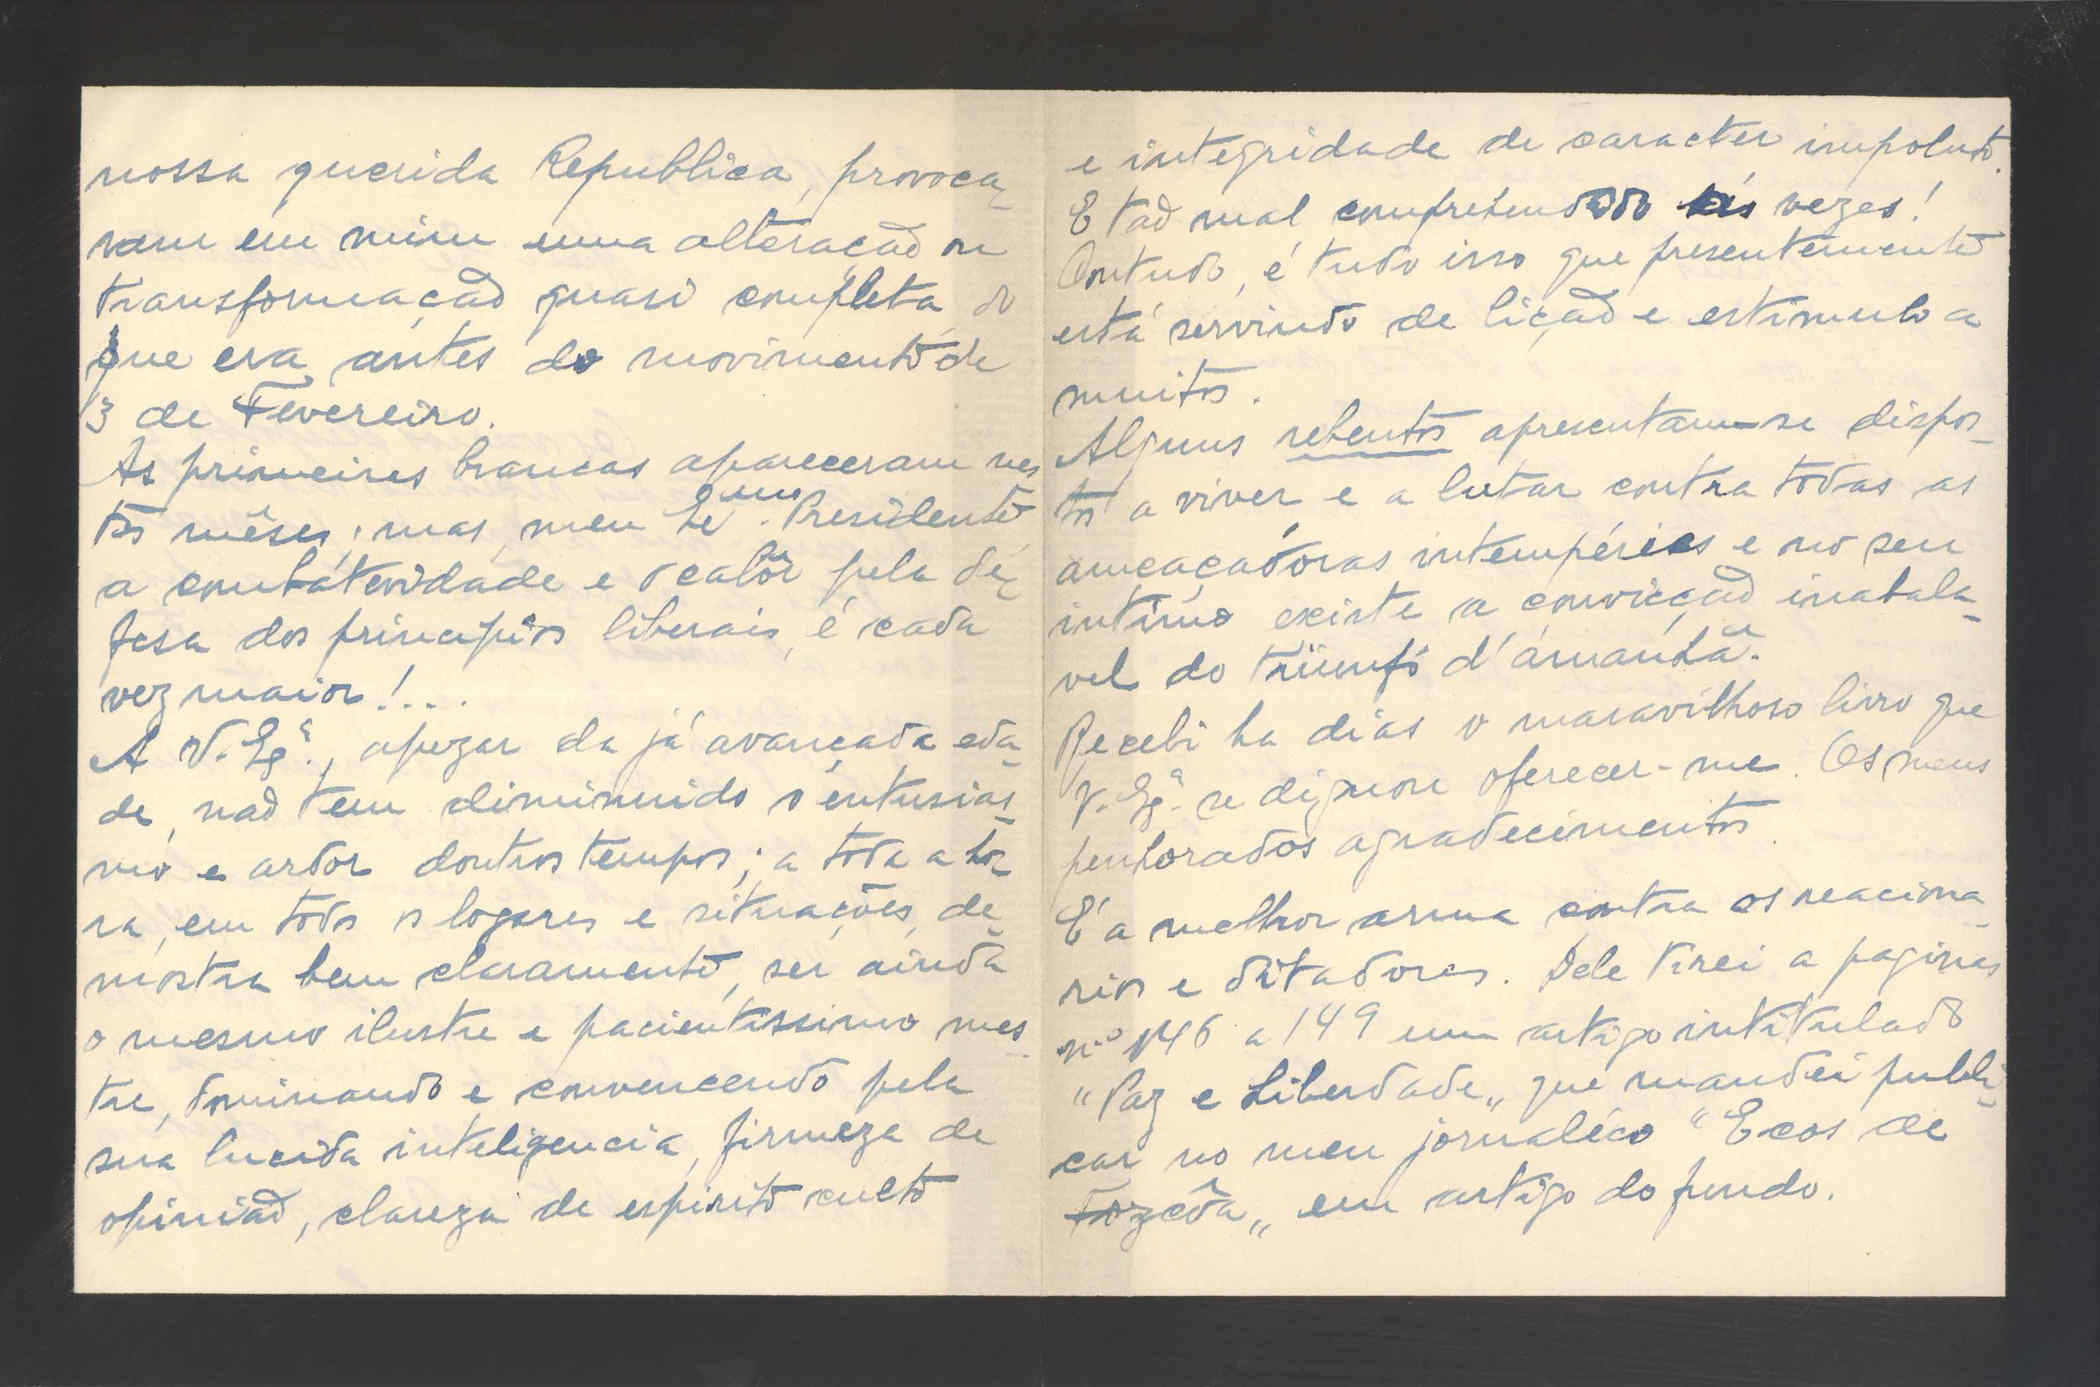 nossa querida Republica, provoca-
ram em mim uma alteração ou
transformação quasi completa do
que era antes do movimento de
3 de Fevereiro.
As primeires brancas apareceram nes
tes mêses; mas, meu Exmo. Presidente,
a combátevidade e o calôr pela de-
fesa dos principios liberais, é cada
vez maior!...
A V. Exª., apezar da já avançada eda-
de, não tem diminuido o entusias-
mo e ardor doutros tempos; a toda a ho-
ra, em todos os logares e situações, de-
mostra bem claramente, ser ainda
o mesmo ilustre e pacientissimo mes-
tre, dominando e convencendo pela
sua lucida inteligencia, firmeza de
opinião, clareza de espirito culto
e integridade de caracter impoluto.
E tão mal compreendido ás vezes!
Contudo, é tudo isso que presentemente
está servindo de lição e estimulo a
muitos.
Alguns rebentos apresentam-se dispos-
tos a viver e a lutar contra todas as
ameaçadoras intempéries e no seu
intimo existe a convicção inabala-
vel do triunfo d'ámanhã.
Recebi ha dias o maravilhoso livro que
V. Exª. se dignou oferecer-me. Os meus
penhorados agradecimentos.
E' a melhor arma contra os reaciona-
rios e ditadores. Dele tirei a paginas
nº 146 a 149 um artigo intitulado
"Paz e Liberdade„ que mandei publi-
car no meu jornaléco "Ecos de
Fozcôa„ em artigo do fundo.